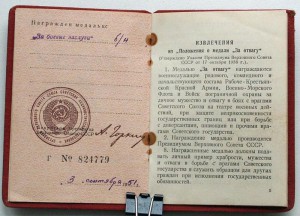 Награжден медалью:
„За боевые заслуги"
б/н
Г № 824779
3 сентября
ИЗВЛЕЧЕНИЯ
из „Положения о медали „За отвагу"
(Утверждено Указом Президиума Верховного Совета
СССР от 17 октября 1938 г.)
1. Медалью „За отвагу" награждаются
военнослужащие рядового, командного и
начальствующего состава Рабоче-Крестьян-
ской Красной Армии, Военно-Морского
Флота и Войск пограничной охраны за
личное мужество и отвагу в боях с врагами
Советского Союза на театре военных дей-
ствий, при защите неприкосновенности
государственных границ или при борьбе с
диверсантами, шпионами и прочими врагами
Советского государства.
2. Награждение медалью производится
Президиумом Верховного Совета СССР.
3. Награжденные медалью должны пода-
вать личный пример храбрости, мужества
и отваги в борьбе с врагами Советского
государства и служить образцом для других
граждан при исполнении возложенных на них
государственных обязанностей.